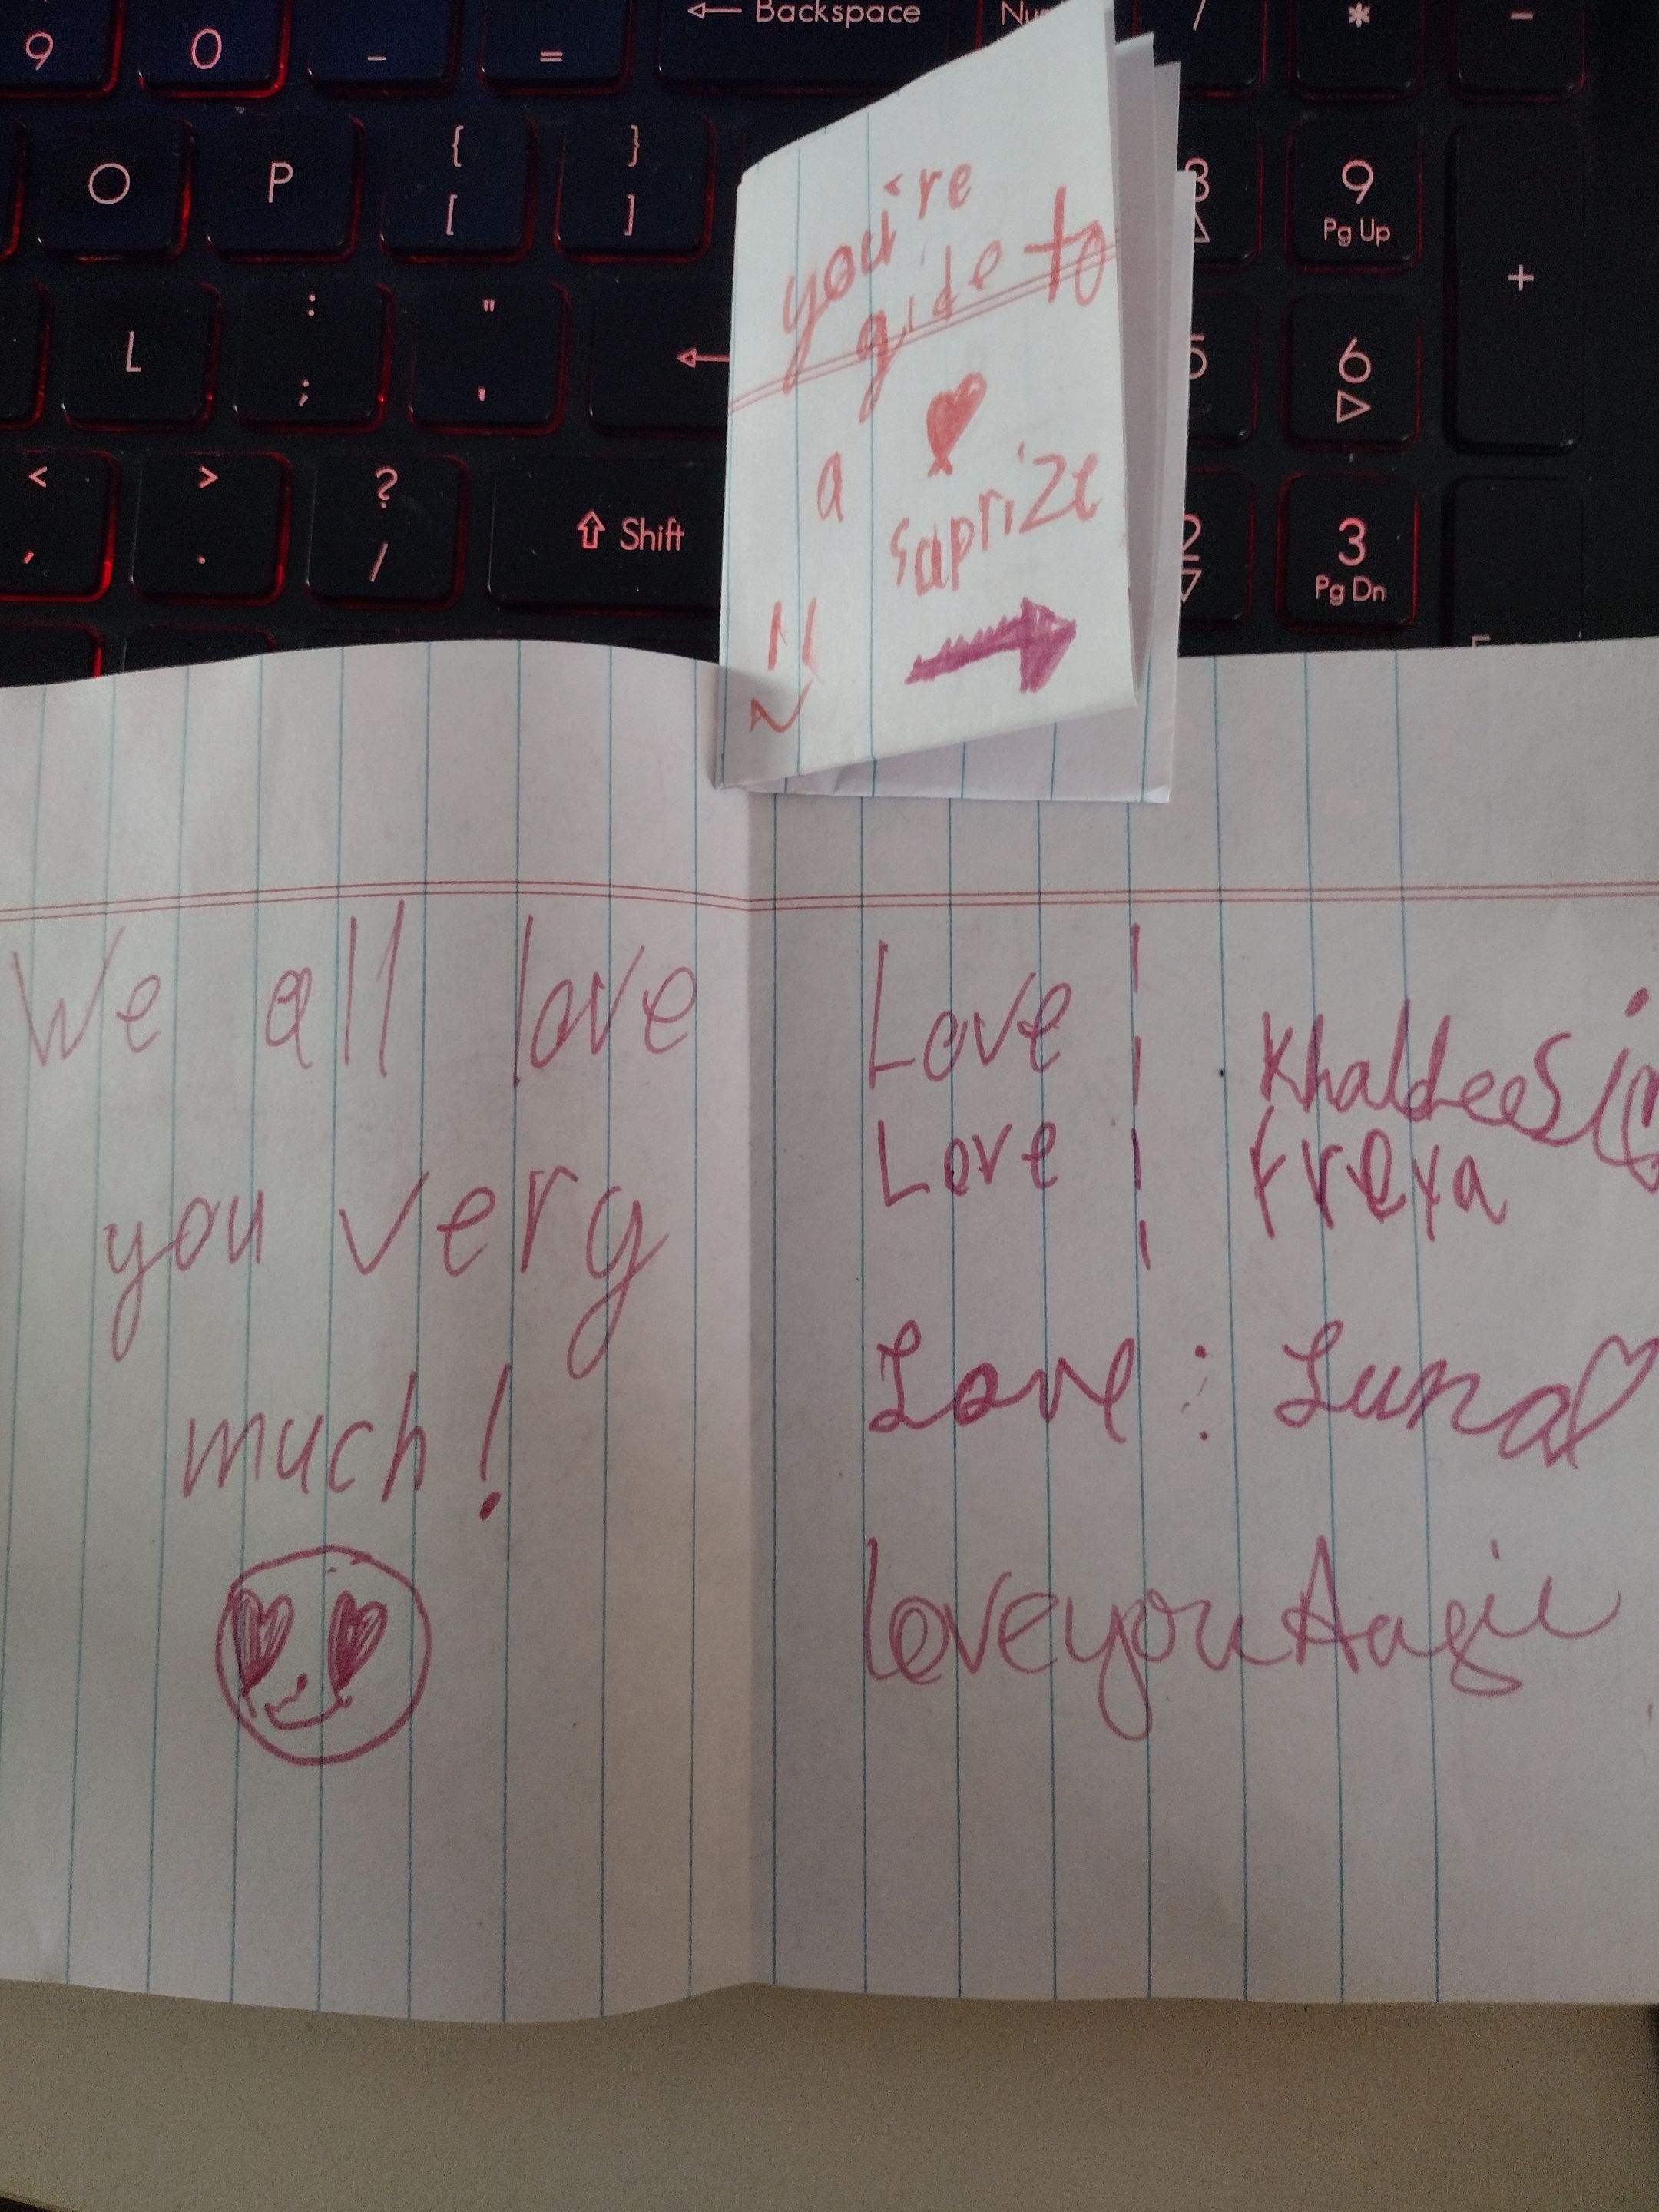 ← Backspace
Nu
/
*
-
9
0
-
=
O
P
{
[
}
]
9
Pg Up
+
L
:
;
"
'
←
5
6
<
,
>
.
?
/
⇧ Shift
2
3
Pg Dn
you're
gide to
a
saprize
We all love
you very
much!
Love
Khaldees
Love
freya
Love : Luna
love you